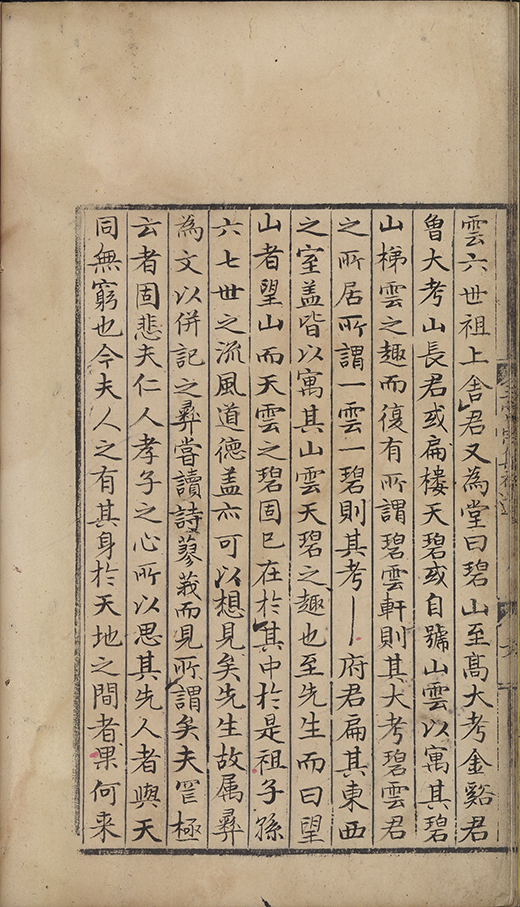 雲六世祖上舍君又為堂曰碧山至髙大考金谿君
曾大考山長君或扁樓天碧或自號山雲以寓其碧
山梯雲之趣而復有所謂碧雲軒則其大考碧雲君
之所居所謂一雲一碧則其考一府君扁其東西
之室盖皆以寓其山雲天碧之趣也至先生而曰望
山者望山而天雲之碧固已在於其中於是祖子孫
六七世之流風道德盖亦可以想見矣先生故属彛
為文以併記之彛嘗讀詩蓼莪而見所謂矣夫罔極
云者固悲夫仁人孝子之心所以思其先人者與天
同無窮也今夫人之有其身於天地之間者果何来